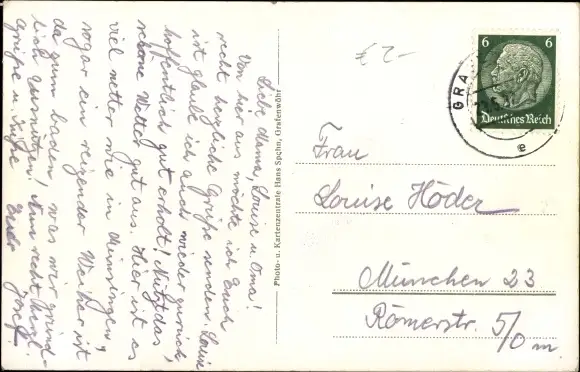 Liebe Mama, Louise u. Oma!
Von hier aus möchte ich Euch
recht herzliche Grüße senden. Luise
ist glaube ich auch wieder zurück,
hoffentlich gut erholt! Nützt das
schöne Wetter gut aus. Hier ist es
viel netter wie in Meinsingen,
sogar ein reizender Weiher ist
da zum baden, was wir gründ-
lich ausnützen! Nun recht herzl.
Grüße u. Küsse Euer
Josef.
Photo- u. Kartenzentrale Hans Spohn, Grafenwöhr
€ 2-
6 6
Deutsches Reich
GRA
e
Frau
Louise Höder
München 23
Römerstr. 5/0
m